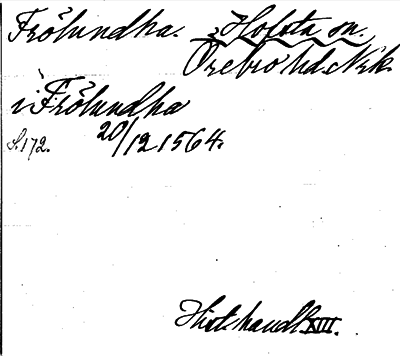 Frölundha. Hofsta sn.
Örebro hd. Nrk.
i Frölundha
S. 172. 20/12 1564.
Hist. handl. XIII.